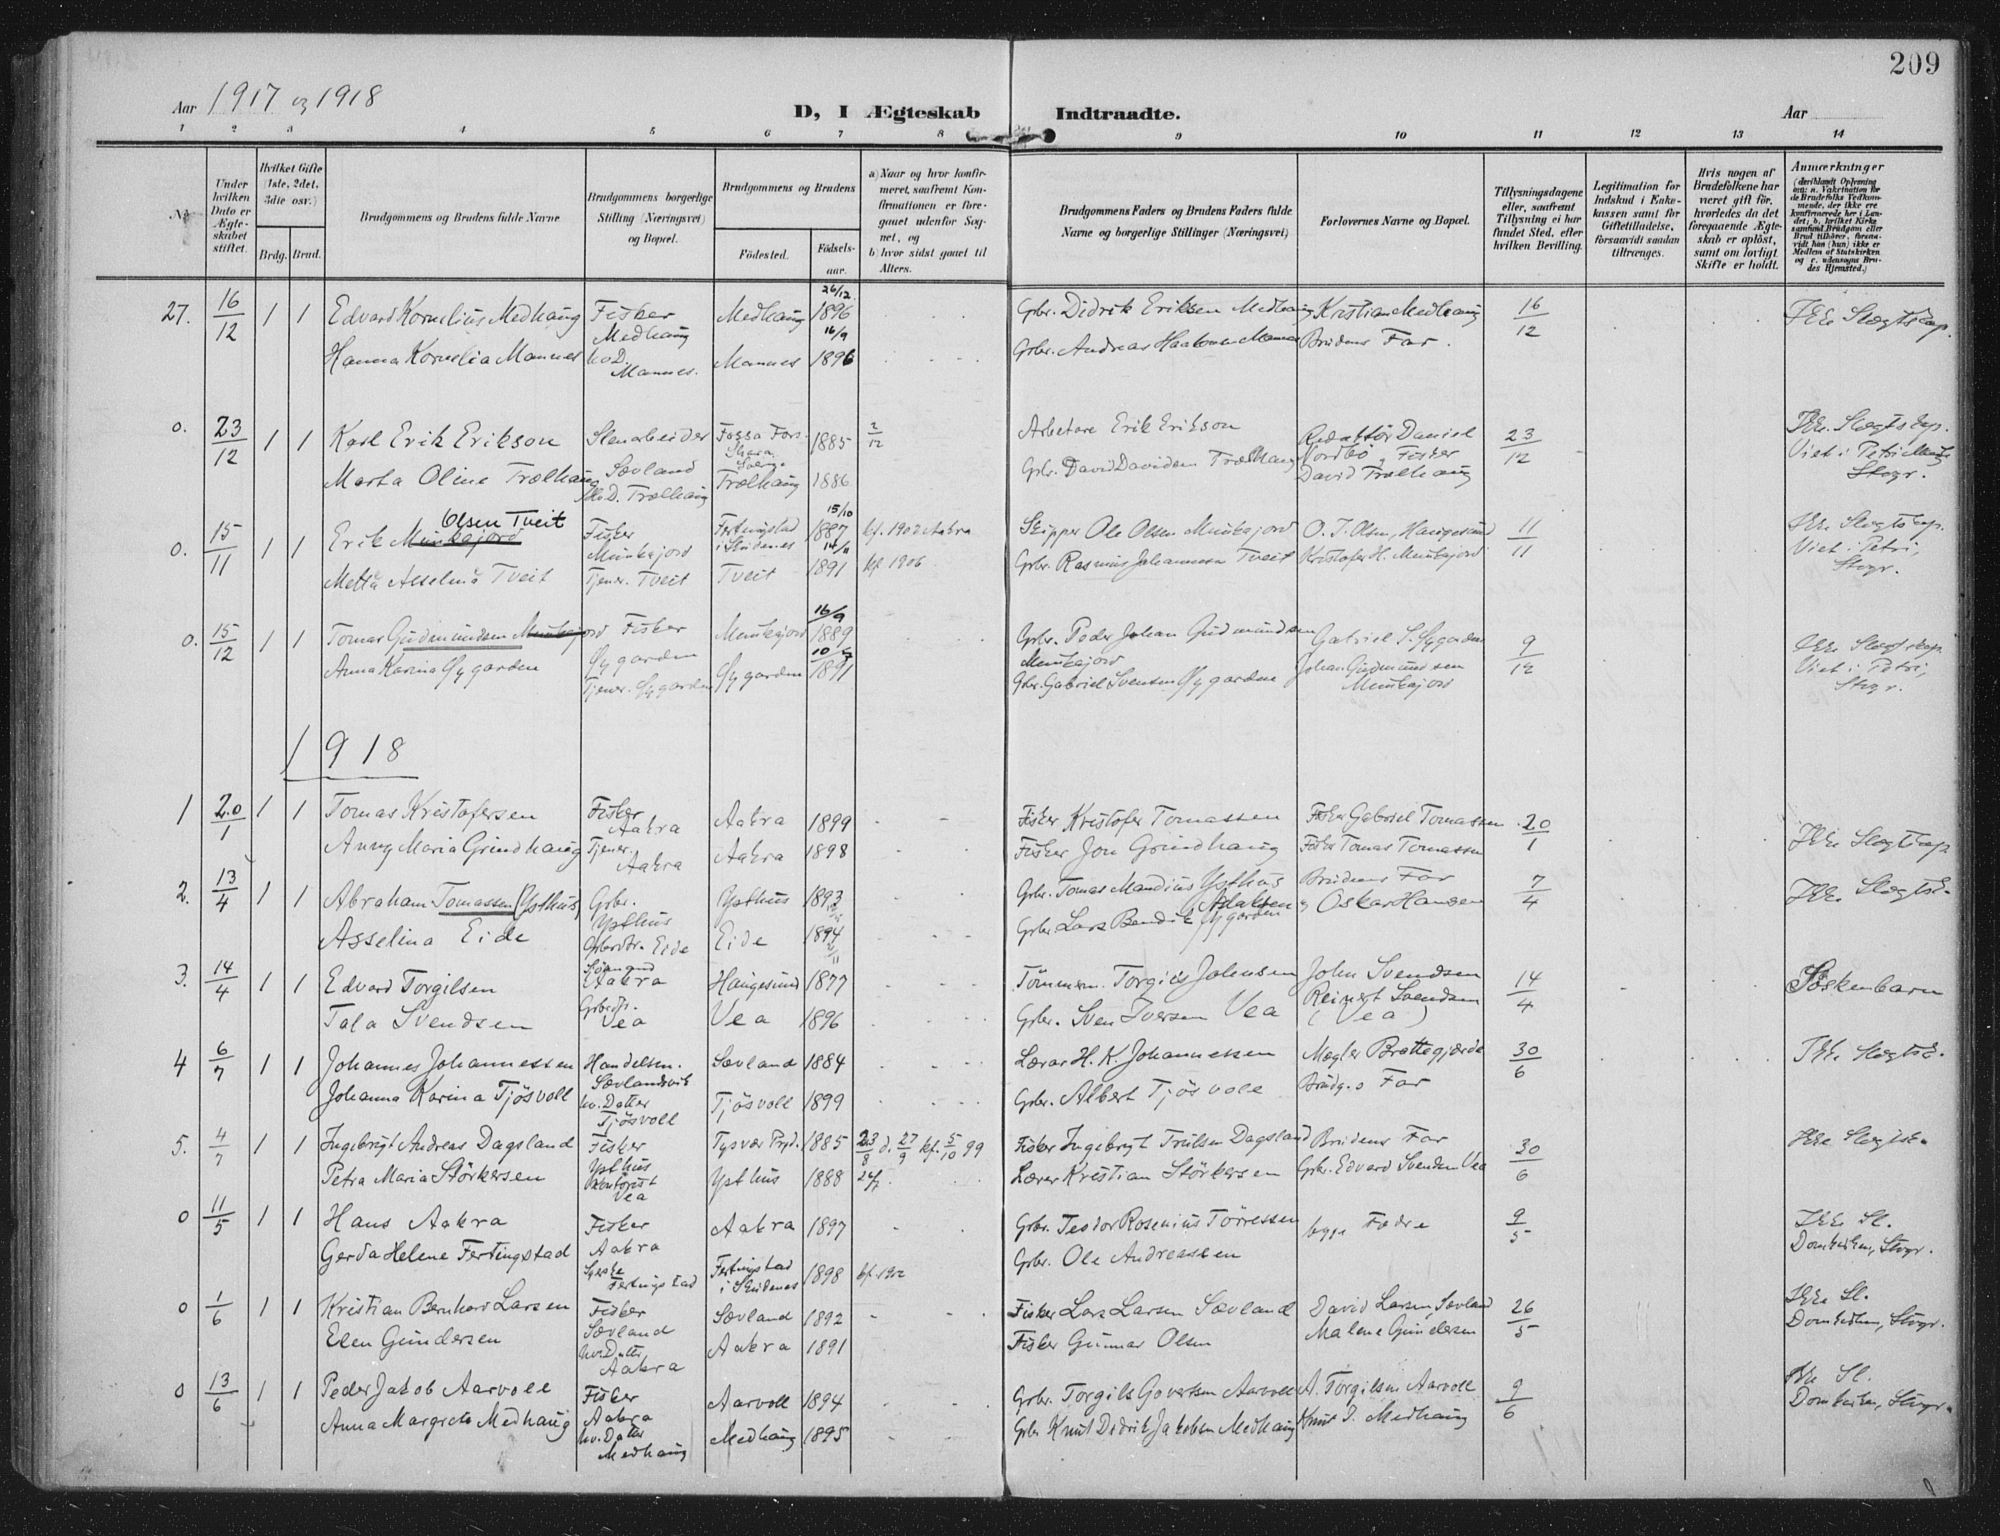 209
Aar 1917 og 1918
D, I Ægteskab Indtraadte.
Aar
1 2 3 4 5 6 7 8 9 10 11 12 13 14
Under hvilken Dato er Ægteskabet stiftet.
Hvilket Gifte (1ste, 2det, 3die osv.)
Brdg. Brud.
Brudgommens og Brudens fulde Navne
Brudgommens borgerlige Stilling (Næringsvei) og Bopæl.
Brudgommens og Brudens
Fødested. Fødselsaar.
a) Naar og hvor konfirmeret, saafremt Konfirmationen er foregaaet udenfor Sognet, og
b) hvor sidst gaaet til Alters.
Brudgommens Faders og Brudens Faders fulde Navne og borgerlige Stillinger (Næringsvei)
Forlovernes Navne og Bopæl.
Tillysningsdagene eller, saafremt Tillysning ei har fundet Sted, efter hvilken Bevilling.
Legitimation for Indskud i Enkekassen samt for Giftetilladelse, forsaavidt saadan tiltrænges.
Hvis nogen af Brudefolkene har været gift før, hvorledes da det foregaaende Ægteskab er opløst, samt om lovligt Skifte er holdt.
Anmærkninger
27. 16/12 1 1 Edvard Kornelius Medhaug Fisker Medhaug Medhaug 26/12 1896 Grbr. Didrik Eriksen Medhaug Kristian Medhaug 16/12 Ikke Slegtskap.
Hanna Kornelia Mannes Mannes. Mannes 16/9 1896 Grbr. Andreas Haakonsen Mannes Brudens Far.
0. 23/12 1 1 Karl Erik Erikson Stenarbeider Sævland 1885 2/12 Arbetare Erik Erikson Redaktør Daniel Nordbø og Fisker 23/12 Ikke Slegtskap. Viet i Petri Stvgr.
Marta Oline Trælhaug Trælhaug Trælhaug 1886 Grbr. David Davidsen Trælhaug David Trælhaug
0. 15/11 1 1 Erik Munkejord Olsen Tveit Fisker Munkejord Fertingstad i Skudenes 15/10 1887 kf. 1902 Aakra Skipper Ole Olsen Munkejord O. J. Olsen, Haugesund 11/11 Ikke Slegtskap. Viet i Petri, Stvgr.
Metta Asselina Tveit Tjener. Tveit Tveit 14/11 1891 kf 1906 Grbr. Rasmus Johannesen Tveit Kristofer H. Munkejord
0. 15/12 1 1 Tomas Gudmundsen Munkejord Fisker Øygarden Munkejord 16/9 1889 Grbr. Peder Johan Gudmundsen Munkejord Gabriel S. Øygarden 9/12 Ikke Slegtskap. Viet i Petri, Stvgr.
Anna Karina Øygarden Tjener. Øygarden Øygarden 1891 Grbr. Gabriel Svensen Øygarden Johan Gudmundsen Munkejord
1918
1 20/1 1 1 Tomas Kristofersen Fisker Aakra Aakra 1899 Fisker Kristofer Tomassen Fisker Gabriel Tomassen 20/1 Ikke Slegtskap
Anny Maria Grindhaug Tjener. Aakra Aakra 1898 Fisker Jon Grindhaug Fisker Tomas Tomassen
2. 13/4 1 1 Abraham Tomassen (Ysthus) Grbr. Ysthus Ysthus 1893 Grbr. Tomas Mandius Ysthus Brudens Far 7/4 Ikke Slegtsk.
Asselina Eide Eide Eide 1894 Grbr. Lars Bendik Øygarden og Oskar Hansen
3. 14/4 1 1 Edvard Torgilsen Sjømand Aakra Haugesund 1877 Tømmerm. Torgils Johnsen John Svendsen 14/4 Søskenbarn
Tala Svendsen Vea Vea 1896 Grbr. Sven Iversen Vea Reinert Svendsen (Vea)
4 6/7 1 1 Johannes Johannessen Handelsm. Sævlandsvik Sævland 1884 Lærer H. K. Johannessen Mægler Brattegjerde 30/6 Ikke Slegtsk.
Johanna Karina Tjøsvoll hv. Datter Tjøsvoll Tjøsvoll 1899 Grbr. Albert Tjøsvoll Brudg.s Far
5. 4/7 1 1 Ingebrigt Andreas Dagsland Fisker Ysthus Tysvær Prgd. 1885 23/8 d. 27/9 kf. 5/10 99 Fisker Ingebrigt Trulsen Dagsland Brudens Far 30/6 Ikke Slegtsk.
Petra Maria Størkersen Kontorist Vea Ysthus 1888 Lærer Kristian Størkersen Grbr. Edvard Svendsen Vea
0 11/5 1 1 Hans Aakra Fisker Aakra Aakra 1897 Grbr. Teodor Rosenius Tørressen begge Fedre 9/5 Ikke Sl. Domkirken, Stvgr.
Gerda Helene Fertingstad Fertingstad Fertingstad i Skudenes 1898 kf. 1912 Grbr. Ole Andreassen
0 1/6 1 1 Kristian Bernhard Larsen Fisker Sævland Sævland 1892 Fisker Lars Larsen Sævland David Larsen Sævland 26/5 Ikke Sl. Domkirken, Stvgr.
Elen Gundersen Aakra Aakra 1891 Fisker Gunnar Olsen Malene Gundersen
0 13/6 1 1 Peder Jakob Aarvoll Fisker Aakra Aarvoll 1894 Grbr. Torgils Govertsen Aarvoll A. Torgilsen Aarvoll 9/6 Ikke Sl. Domkirken, Stvgr.
Anna Margrete Medhaug hv. Datter Medhaug Medhaug 1895 Grbr Knut Didrik Jakobsen Medhaug Knut J. Medhaug